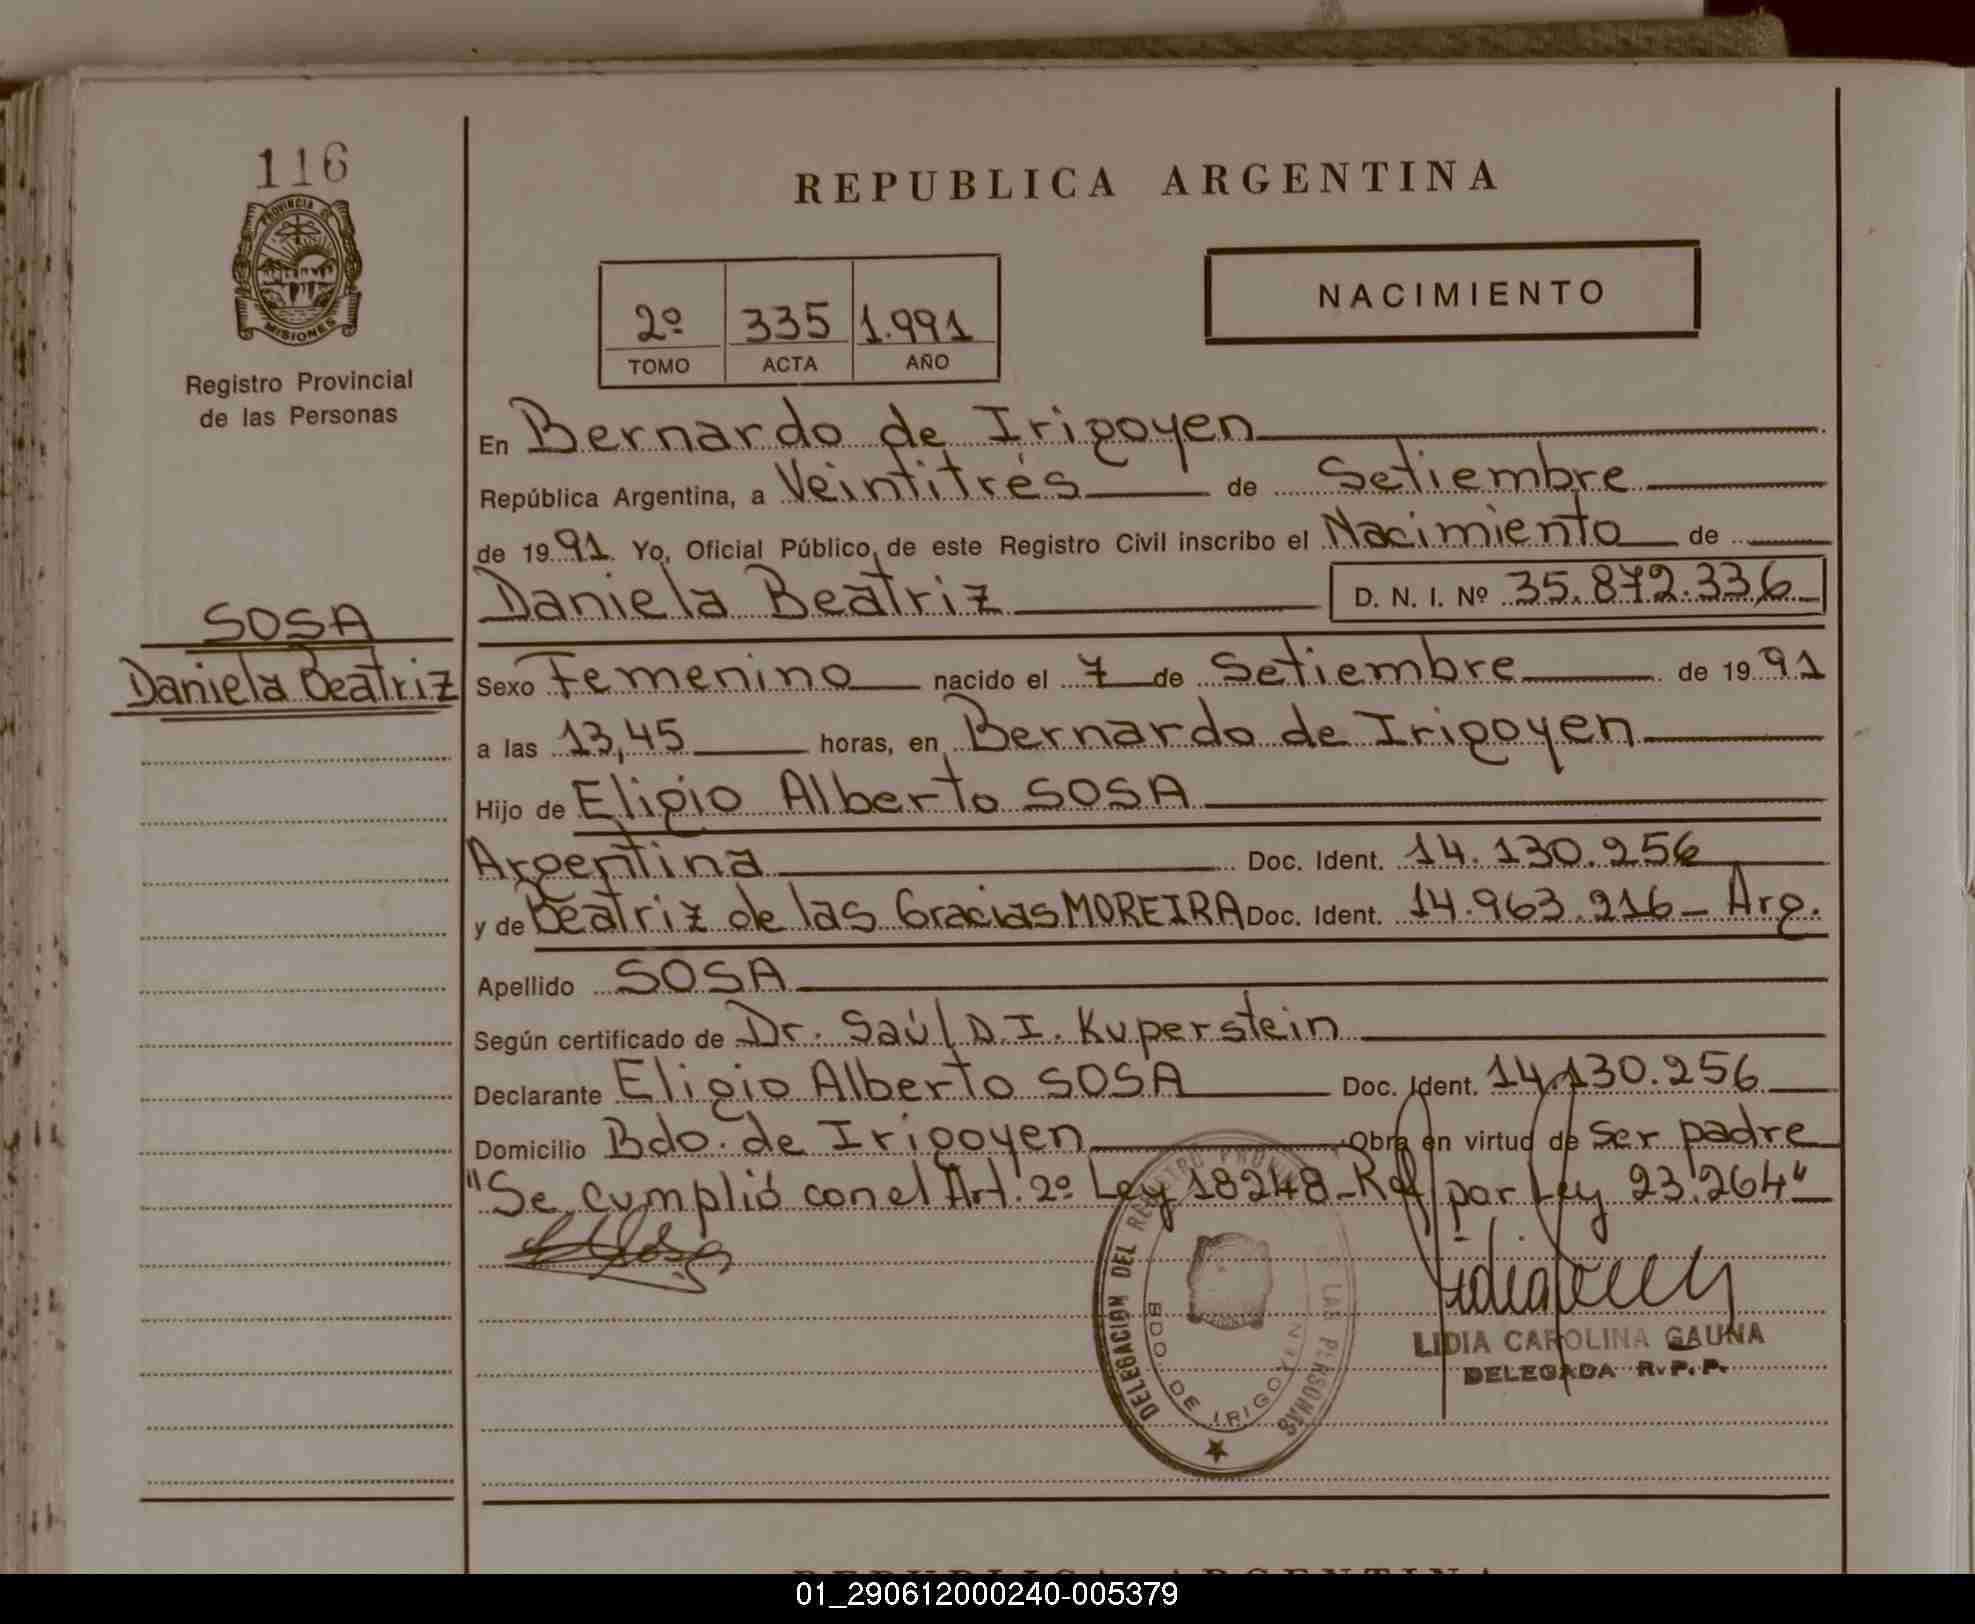 116
PROVINCIA DE
MISIONES
Registro Provincial
de las Personas
REPUBLICA ARGENTINA
NACIMIENTO
2º 335 1.991
TOMO ACTA AÑO
En Bernardo de Irigoyen
República Argentina, a Veintitrés de Setiembre
de 1991. Yo, Oficial Público, de este Registro Civil inscribo el Nacimiento de
Daniela Beatriz D. N. I. Nº 35.872.336
SOSA
Daniela Beatriz
Sexo Femenino nacido el 7 de Setiembre de 1991
a las 13,45 horas, en Bernardo de Irigoyen
Hijo de Eligio Alberto SOSA
Argentina Doc. Ident. 14.130.256
y de Beatriz de las Gracias MOREIRA Doc. Ident. 14.963.216 - Arg.
Apellido SOSA
Según certificado de Dr. Saúl D.I. Kuperstein
Declarante Eligio Alberto SOSA Doc. Ident. 14.130.256
Domicilio Bdo. de Irigoyen Obra en virtud de ser padre
"Se cumplió con el Art. 2º Ley 18248 - Ref. por Ley 23.264"
DELEGACION DEL REGISTRO PROVINCIAL DE LAS PERSONAS
BDO. DE IRIGOYEN
LIDIA CAROLINA GAUNA
DELEGADA R.P.P.
REPUBLICA ARGENTINA
01_290612000240-005379